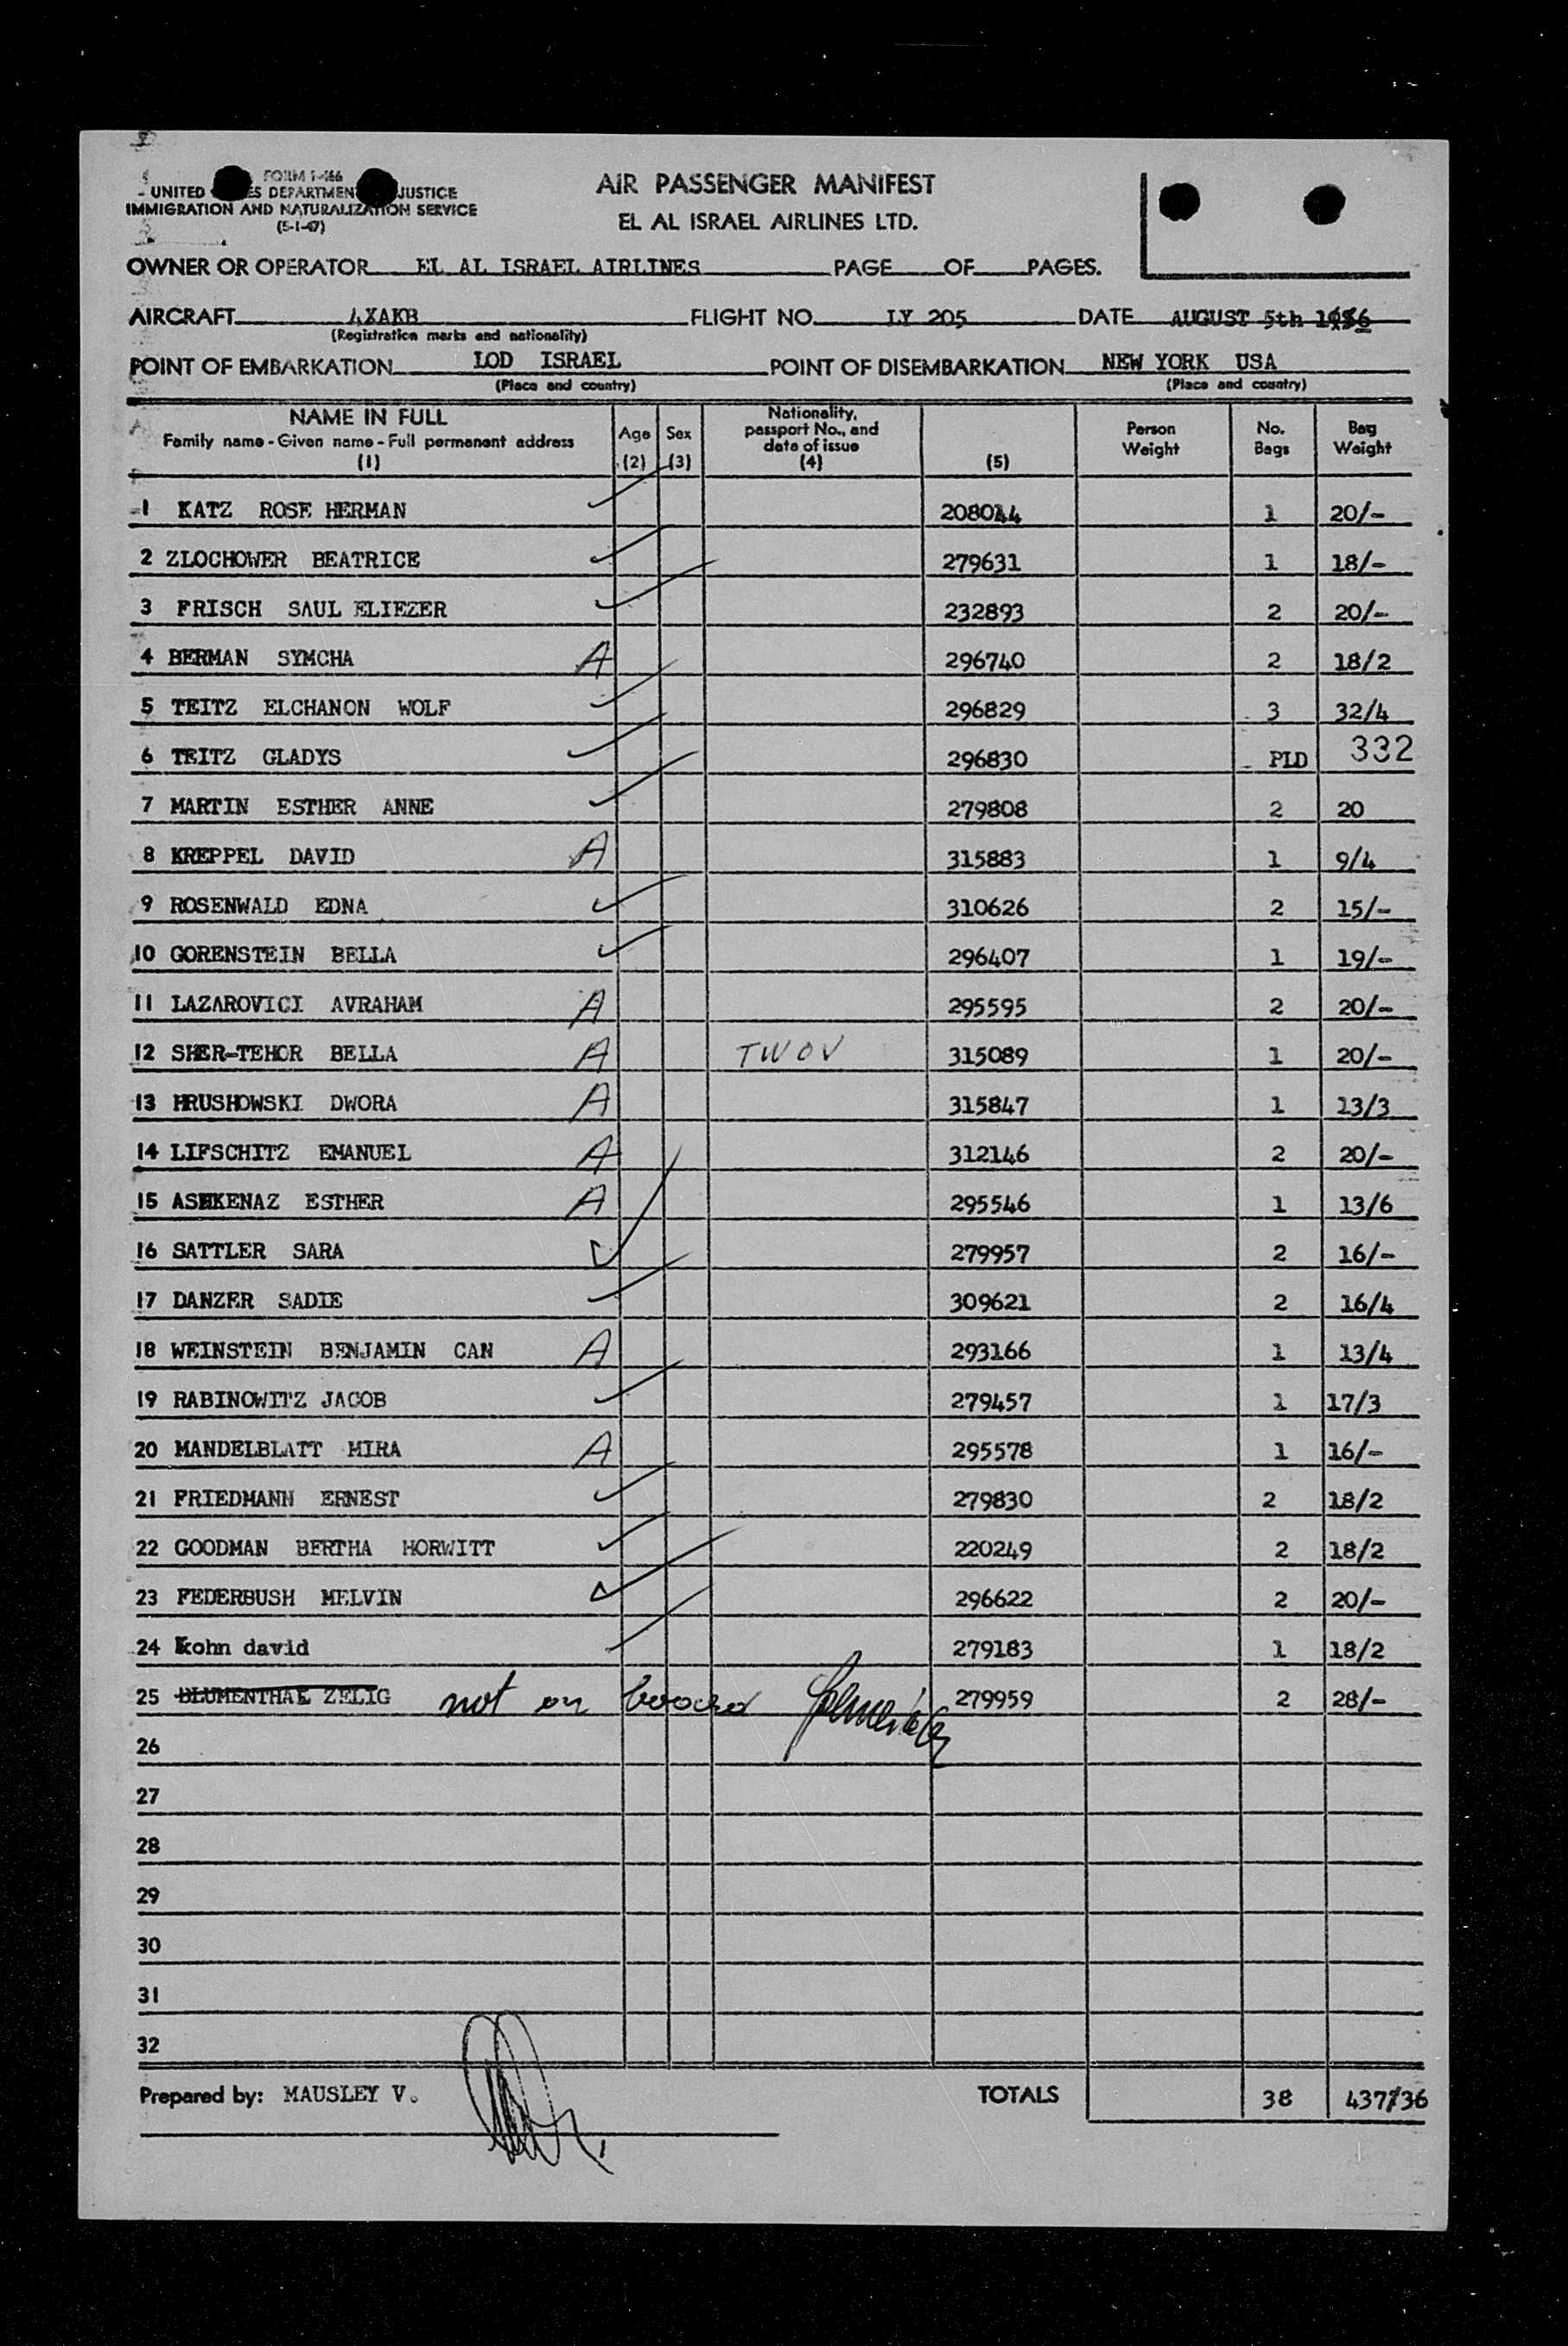 FORM I-466
UNITED ES DEPARTMEN JUSTICE
IMMIGRATION AND NATURALIZATION SERVICE
(5-1-47)
AIR PASSENGER MANIFEST
EL AL ISRAEL AIRLINES LTD.
OWNER OR OPERATOR EL AL ISRAEL AIRLINES PAGE OF PAGES.
AIRCRAFT 4XAKB FLIGHT NO. LY 205 DATE AUGUST 5th 1956
(Registration marks and nationality)
POINT OF EMBARKATION LOD ISRAEL POINT OF DISEMBARKATION NEW YORK USA
(Place and country) (Place and country)
NAME IN FULL
Family name - Given name - Full permanent address
(1)
Age
(2)
Sex
(3)
Nationality,
passport No., and
date of issue
(4)
(5)
Person
Weight
No.
Bags
Bag
Weight
1 KATZ ROSE HERMAN 208044 1 20/-
2 ZLOCHOWER BEATRICE 279631 1 18/-
3 FRISCH SAUL ELIEZER 232893 2 20/-
4 BERMAN SYMCHA A 296740 2 18/2
5 TEITZ ELCHANON WOLF 296829 3 32/4
6 TEITZ GLADYS 296830 PLD 332
7 MARTIN ESTHER ANNE 279808 2 20
8 KREPPEL DAVID A 315883 1 9/4
9 ROSENWALD EDNA 310626 2 15/-
10 GORENSTEIN BELLA 296407 1 19/-
11 LAZAROVICI AVRAHAM A 295595 2 20/-
12 SHER-TEHOR BELLA A TWOV 315089 1 20/-
13 HRUSHOWSKI DWORA A 315847 1 13/3
14 LIFSCHITZ EMANUEL A 312146 2 20/-
15 ASHKENAZ ESTHER A 295546 1 13/6
16 SATTLER SARA 279957 2 16/-
17 DANZER SADIE 309621 2 16/4
18 WEINSTEIN BENJAMIN CAN A 293166 1 13/4
19 RABINOWITZ JACOB 279457 1 17/3
20 MANDELBLATT MIRA A 295578 1 16/-
21 FRIEDMANN ERNEST 279830 2 18/2
22 GOODMAN BERTHA HORWITT 220249 2 18/2
23 FEDERBUSH MELVIN 296622 2 20/-
24 Kohn david 279183 1 18/2
25 BLUMENTHAL ZELIG not on board 279959 2 28/-
26
27
28
29
30
31
32
Prepared by: MAUSLEY V. TOTALS 38 437/36